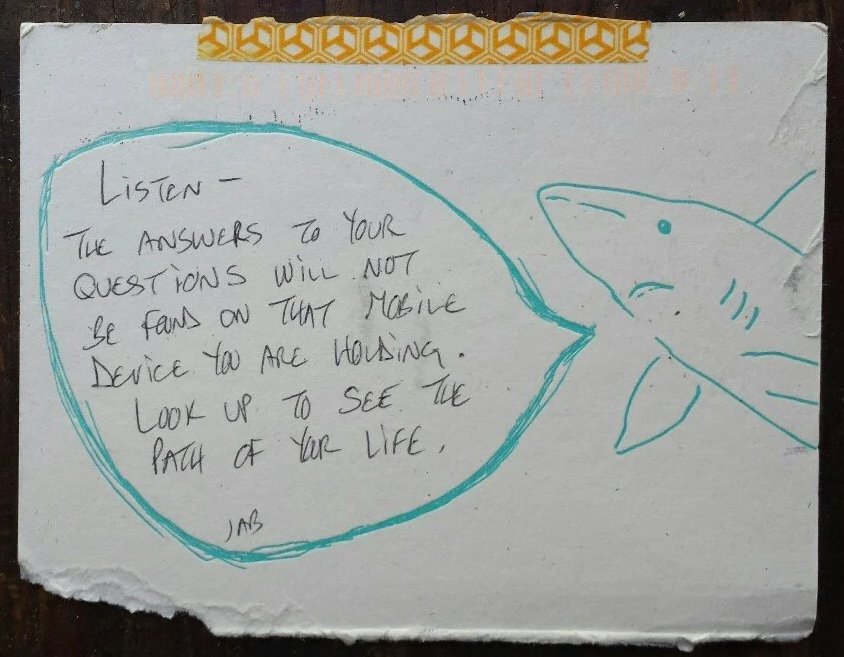 LiSTEN –
THE ANSWERS TO YOUR
QUESTiONS WiLL NOT
BE FOUND ON THAT MOBiLE
DEViCE YOU ARE HOLDiNG.
LOOK UP TO SEE THE
PATH OF YOUR LiFE.
JAB